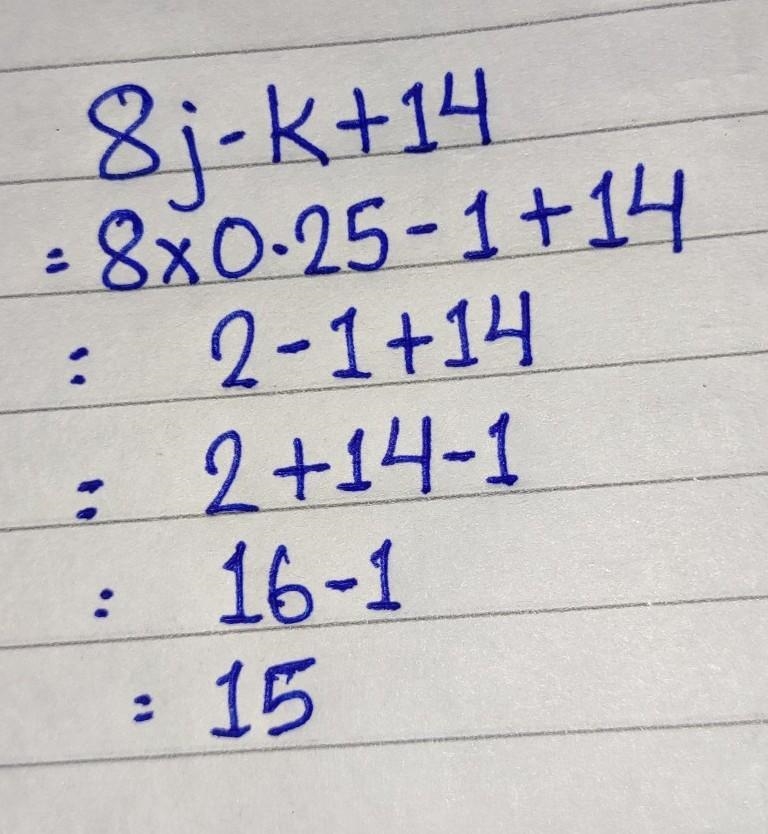 8j-k+14
=8×0.25-1+14
= 2-1+14
= 2+14-1
= 16-1
= 15